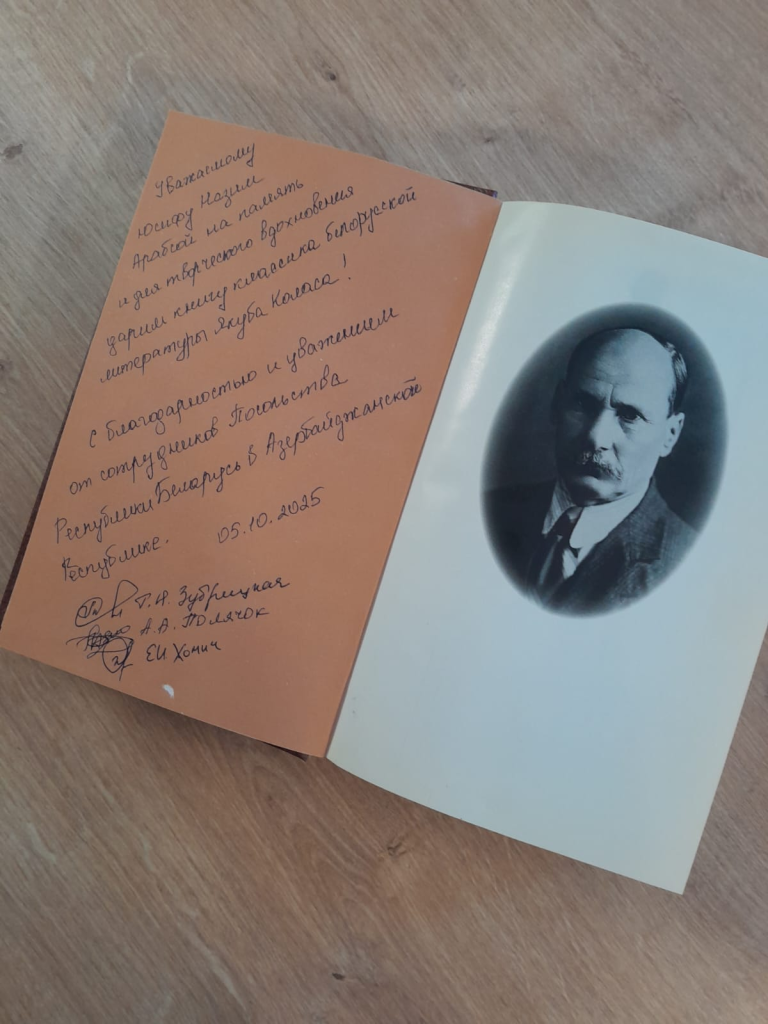 Уважаемому
Юсифу Назим
Арабсой на память
и для творческого вдохновения
дарим книгу классика белорусской
литературы Якуба Коласа!
С благодарностью и уважением
от сотрудников Посольства
Республики Беларусь в Азербайджанской
Республике. 05.10.2025
Зубрицкая
А.А. Полячок
ЕИ Хомич